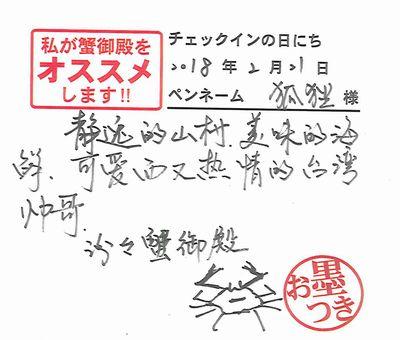 私が蟹御殿を
オススメ
します!!
チェックインの日にち
2018年2月21日
ペンネーム 狐狸 様
静逸的山村、美味的海
鲜、可爱而又热情的台湾
帅哥.
蟹御殿
お墨つき